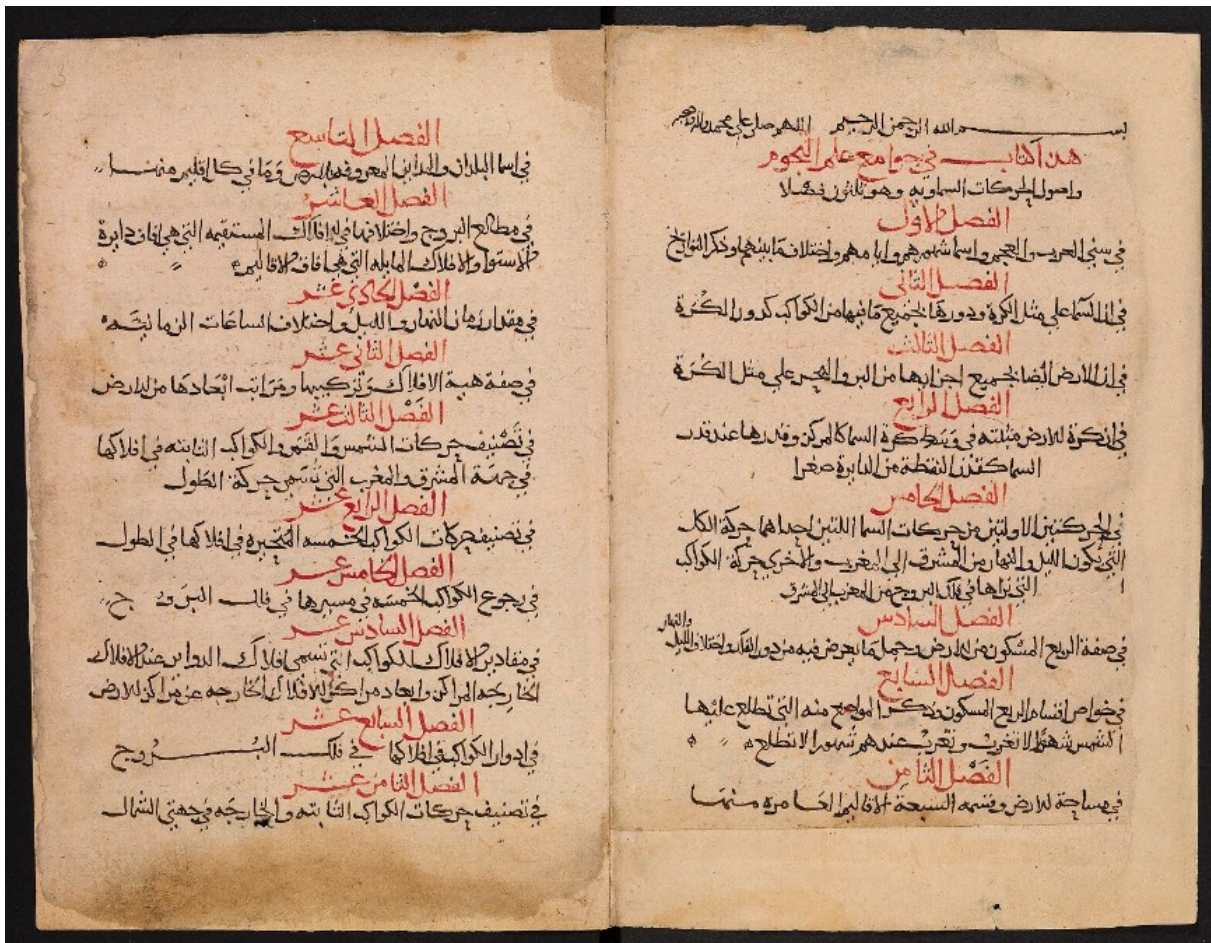 بسم الله الرحمن الرحيم اللهم صل على محمد واله
هذا كتاب في جوامع علم النجوم
واصول الحركات السماويه وهو ثلثون فصلا
الفصل الاول
في سني العرب والعجم واسما شهورهم وايامهم واختلاف ما بينهم وذكر التواريخ
الفصل الثاني
في ان السما على مثل الكرة ودورها بجميع ما فيها من الكواكب كدور الكرة
الفصل الثالث
في ان الارض ايضا بجميع اجزايها من البر والبحر على مثل الكرة
الفصل الرابع
في ان كرة الارض مثبته في وسط كرة السما كالمركز وقدرها عند قدر
السما كقدر النقطة من الدايرة صغرا
الفصل الخامس
في الحركتين الاولتين من حركات السما اللتين احداهما حركة الكل
التي تكون الليل والنهار من المشرق الى المغرب والاخرى حركة الكواكب
التي نراها في فلك البروج من المغرب الى المشرق
الفصل السادس
في صفة الربع المسكون من الارض وجمل ما يعرض فيه من دور الفلك واختلاف الليل والنهار
الفصل السابع
في خواص اقسام الربع المسكون وذكر المواضع منه التي تطلع عليها
الشمس شهورا لا تغرب وتغرب عندهم شهورا لا تطلع
الفصل الثامن
في مساحة الارض وقسمه السبعة الاقاليم العامرة منها
الفصل التاسع
في اسما البلدان والمداين المعروفه في الارض وما في كل اقليم منها
الفصل العاشر
في مطالع البروج واختلافها في الافلاك المستقيمه التي هي افاق دايرة
الاستوا والافلاك المايله التي هي افاق الاقاليم
الفصل الحادي عشر
في مقدار زمان النهار والليل واختلاف الساعات الزمانيه
الفصل الثاني عشر
في صفة هية الافلاك وتركيبها ومراتب ابعادها من الارض
الفصل الثالث عشر
في تصنيف حركات الشمس والقمر والكواكب الثابته في افلاكها
في جهة المشرق والمغرب التي تسمى حركة الطول
الفصل الرابع عشر
في تصنيف حركات الكواكب الخمسه المتحيرة في افلاكها في الطول
الفصل الخامس عشر
في رجوع الكواكب الخمسه في مسيرها في فلك البروج
الفصل السادس عشر
في مقادير الافلاك للكواكب التي تسمى افلاك الدواير عند الافلاك
الخارجه المراكز وابعاد مراكز الافلاك الخارجه عن مراكز الارض
الفصل السابع عشر
في ادوار الكواكب في افلاكها في فلك البروج
الفصل الثامن عشر
في تصنيف حركات الكواكب الثابته والخارجه في جهتي الشمال